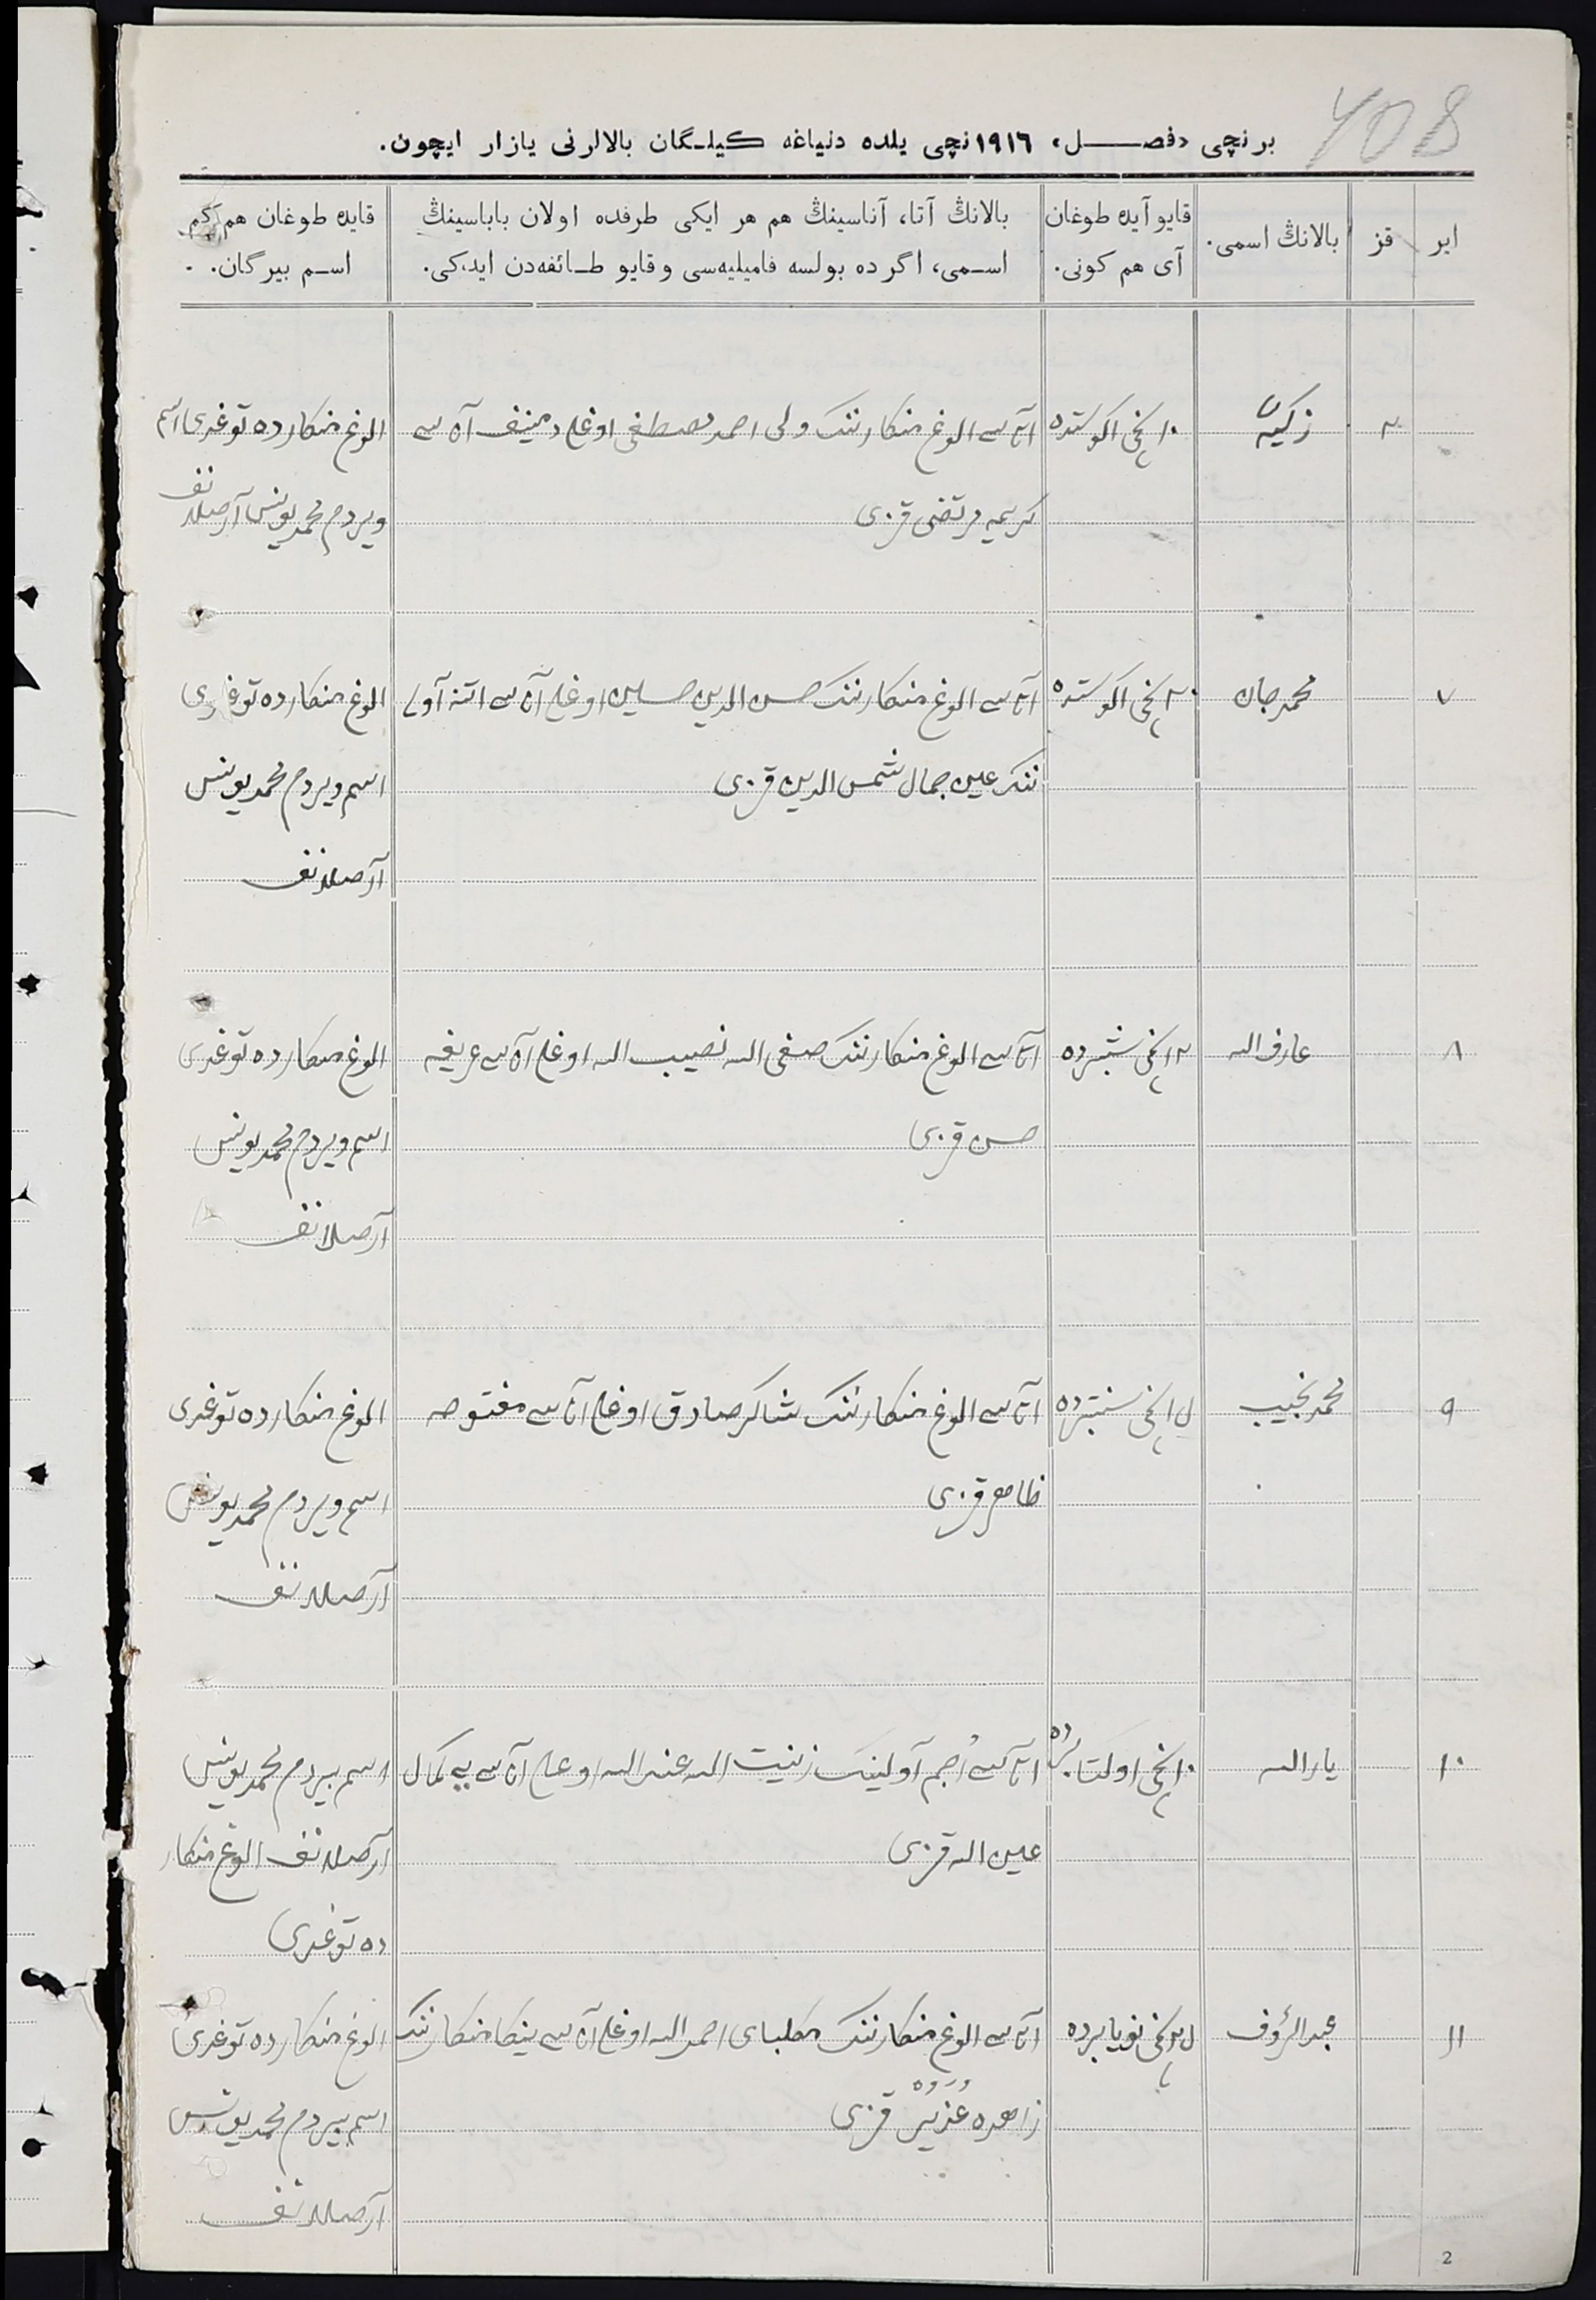 408
برنچی «فصل» ١٩١٦نچی یلده دنیاغه كیلگان بالالرنی یازار ایچون.
ایر
قز
بالانڭ اسمی.
قایو آیده طوغان
آی هم كونی.
بالانڭ آتا، آناسینڭ هم هر ایكی طرفده اولان باباسینڭ
اسمی، اگر ده بولسه فامیلیه‌سی و قایو طائفه‌دن ایدكی.
قایده طوغان هم كم
اسم بیرگان.
زكیه
١٠نچی اگوستده
آتاسی الوغ منكارننك ولی احمد مصطفی اوغلی آناسی
كریمه مرتضی قزی
الوغ منكارده توغدی اسم
ویردم محمد یونس آرصلانف
٧
محمدجان
٢٠نچی اگوستده
آتاسی الوغ منكارننك حسن الدین حسین اوغلی آناسی اتنه آولی
ننك عین جمال شمس الدین قزی
الوغ منكارده توغدی
اسم ویردم محمد یونس
آرصلانف
٨
عارف الله
١٢نچی سنتبرده
آتاسی الوغ منكارننك صفی الله نصیب الله اوغلی آناسی عریفه
حسن قزی
الوغ منكارده توغدی
اسم ویردم محمد یونس
آرصلانف
٩
محمد نجیب
نچی سنتبرده
آتاسی الوغ منكارننك شاكر صادق اوغلی آناسی مفتوحه
ظاهر قزی
الوغ منكارده توغدی
اسم ویردم محمد یونس
آرصلانف
١٠
یارالله
١٠نچی اوكتابرده
آتاسی آولینك زینت الله اوغلی آناسی بی كمال
عین الله قزی
اسم بیردم محمد یونس
آرصلانف الوغ منكار
ده توغدی
١١
عبدالرؤف
نچی نویابرده
آتاسی الوغ منكارننك احمدالله اوغلی آناسی ینكا منكارننك
زاهده عزیر قزی
الوغ منكارده توغدی
اسم بیردم محمد یونس
آرصلانف
2